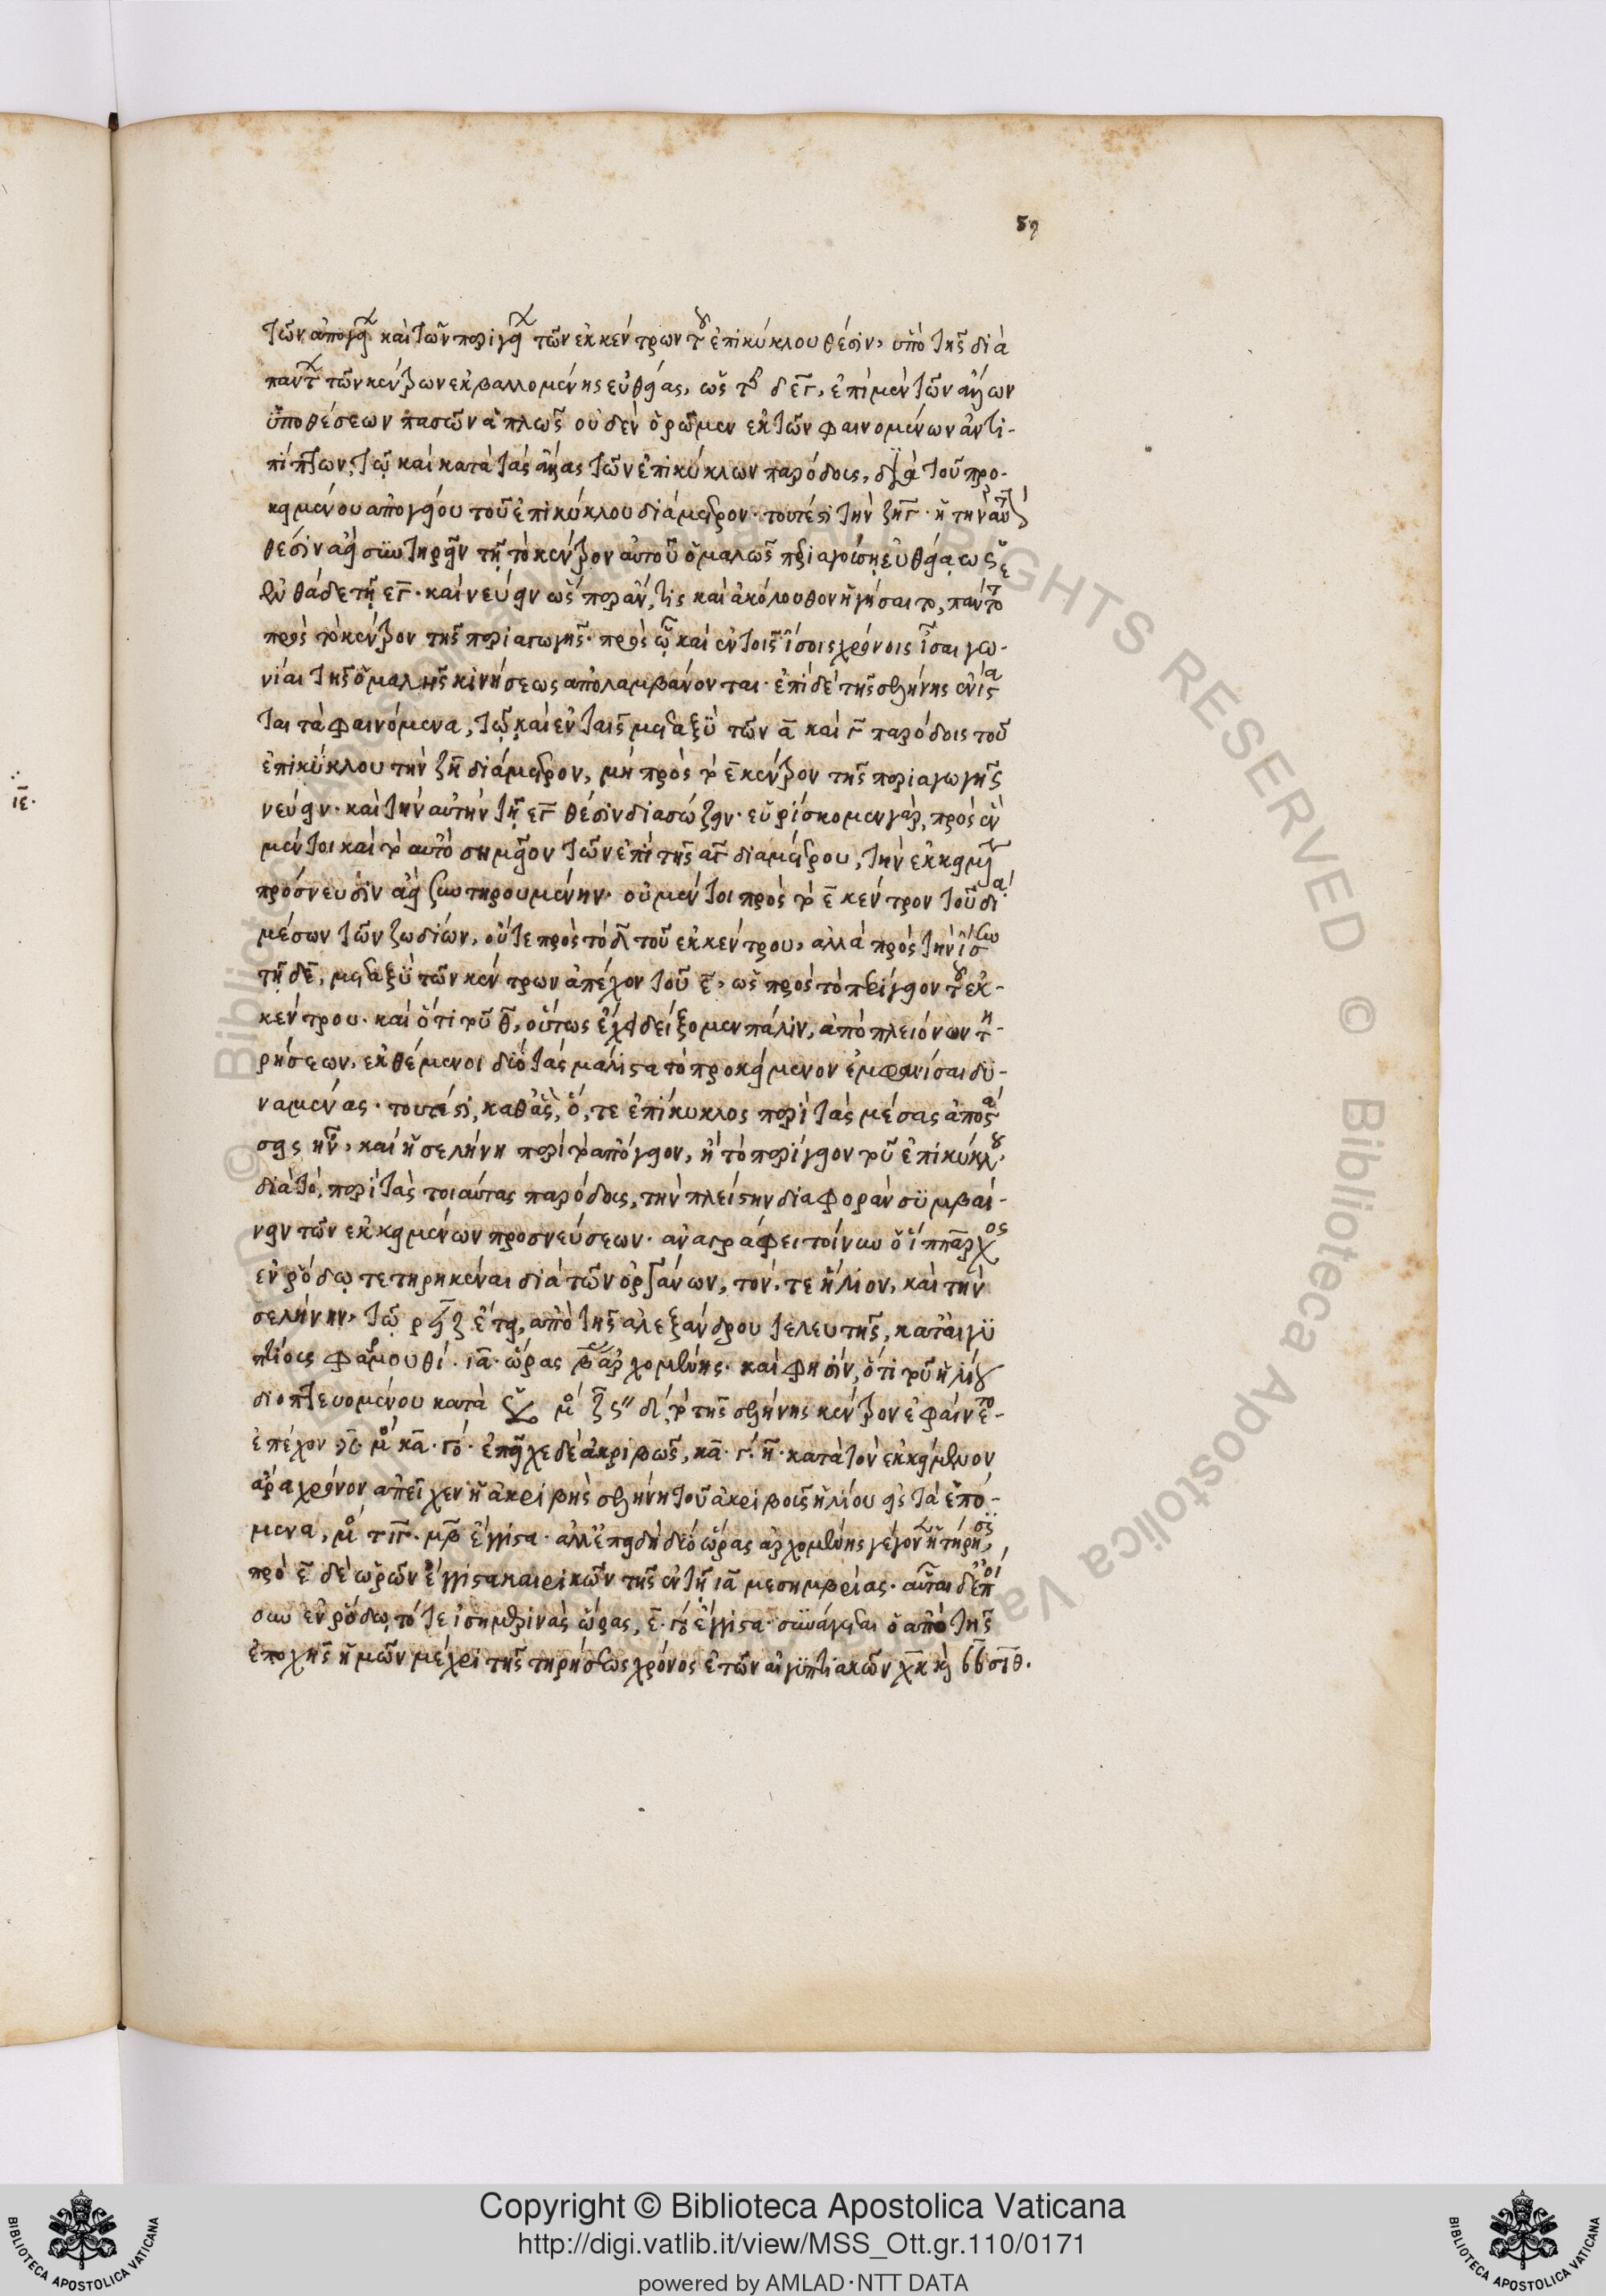 59
τῶν ἀπογείων καὶ τῶν περιγείων τῶν ἐκκέντρων τοῦ ἐπικύκλου θέσιν, ὑπὸ τῆς διὰ
πάντων τῶν κέντρων ἐκβαλλομένης εὐθείας, ὡς τῆς δεγ, ἐπὶ μὲν τῶν ἄλλων
ὑποθέσεων πασῶν ἁπλῶς οὐδὲν ὁρῶμεν ἐκ τῶν φαινομένων ἀντι-
πίπτων, τῷ καὶ κατὰ τὰς ἄλλας τῶν ἐπικύκλων παρόδους, διὰ τοῦ προ-
κειμένου ἀπογείου τοῦ ἐπικύκλου διάμετρον· τουτέστι τὴν ζηγ· ἢ τὴν αὐτὴν
θέσιν ἀεὶ συντηρεῖν τῇ τὸ κέντρον αὐτοῦ ὁμαλῶς περιαγούσῃ εὐθείᾳ ὡς
ἐνθάδε τῇ εγ· καὶ νεύειν ὥσπερ ἄν τις καὶ ἀκόλουθον ἡγήσαιτο, πάντοτε
πρὸς τὸ κέντρον τῆς περιαγωγῆς· πρὸς ᾧ καὶ ἐν τοῖς ἴσοις χρόνοις ἴσαι γω-
νίαι τῆς ὁμαλῆς κινήσεως ἀπολαμβάνονται· ἐπὶ δὲ τῆς σελήνης ἐνίστα
ται τὰ φαινόμενα, τῷ καὶ ἐν ταῖς μεταξὺ τῶν α καὶ γ παρόδοις τοῦ
ἐπικύκλου τὴν ζη διάμετρον, μὴ πρὸς τὸ ε κέντρον τῆς περιαγωγῆς
νεύειν· καὶ τὴν αὐτὴν τῇ εγ θέσιν διασώζειν· εὑρίσκομεν γὰρ, πρὸς ἓν
μέντοι καὶ τὸ αὐτὸ σημεῖον τῶν ἐπὶ τῆς αγ διαμέτρου, τὴν ἐκκειμένην
πρόσνευσιν ἀεὶ συντηρουμένην· οὐ μέντοι πρὸς τὸ ε κέντρον τοῦ διὰ
μέσων τῶν ζωδίων, οὔτε πρὸς τὸ δ τοῦ ἐκκέντρου, ἀλλὰ πρὸς τὴν ἴσον
τῇ δε, μεταξὺ τῶν κέντρων ἀπέχον τοῦ ε, ὡς πρὸς τὸ περίγειον τοῦ ἐκ-
κέντρου· καὶ ὅτι τοῦθ, οὕτως ἔχει δείξομεν πάλιν, ἀπὸ πλειόνων τη-
ρήσεων, ἐκθέμενοι δύο τὰς μάλιστα τὸ προκείμενον ἐμφανίσαι δυ-
ναμένας· τουτέστι, καθὰς, ὅ, τε ἐπίκυκλος περὶ τὰς μέσας ἀποστά
σεις ἦν, καὶ ἡ σελήνη περὶ τὸ ἀπόγειον, ἢ τὸ περίγειον τοῦ ἐπικύκλου,
διὰ τὸ, περὶ τὰς τοιαύτας παρόδους, τὴν πλείστην διαφορὰν συμβαί-
νειν τῶν ἐκκειμένων προσνεύσεων· ἀναγράφει τοίνυν ὁ ἵππαρχος
ἐν ῥόδῳ τετηρηκέναι διὰ τῶν ὀργάνων, τόν, τε ἥλιον, καὶ τὴν
σελήνην, τῷ ρϟζ ἔτει, ἀπὸ τῆς ἀλεξάνδρου τελευτῆς, κατ' αἰγυ
πτίους φαρμουθί· ια· ὥρας β ἀρχομένης· καὶ φησὶν, ὅτι τοῦ ἡλίου
διοπτευομένου κατὰ ♉ μο ζ ς″ δι, τὸ τῆς σελήνης κέντρον ἐφαίνετο-
ἐπέχον ♓ μο κα· γο· ἐπεῖχε δὲ ἀκριβῶς, κα· γ· η· κατὰ τὸν ἐκκείμενον
ἄρα χρόνον ἀπεῖχεν ἡ ἀκριβὴς σελήνη τοῦ ἀκριβοῦς ἡλίου εἰς τὰ ἑπό-
μενα, μο τιγ· μβ ἔγγιστα· ἀλλ' ἐπειδὴ δύο ὥρας ἀρχομένης γέγονεν ἡ τήρησις,
πρὸ ε δὲ ὡρῶν ἔγγιστα καιρικῶν τῆς ἐν τῇ ια μεσημβρίας· αὗται δ' ἐποί
ουν ἐν ῥόδῳ, τότε ἰσημερινὰς ὥρας, ε· γο ἔγγιστα· συνάγεται ὁ ἀπὸ τῆς
ἐποχῆς ἡμῶν μέχρι τῆς τηρήσεως χρόνος ἐτῶν αἰγυπτιακῶν χκ καὶ ἡμερῶν σιθ.
ιε·
Copyright © Biblioteca Apostolica Vaticana
http://digi.vatlib.it/view/MSS_Ott.gr.110/0171
powered by AMLAD·NTT DATA